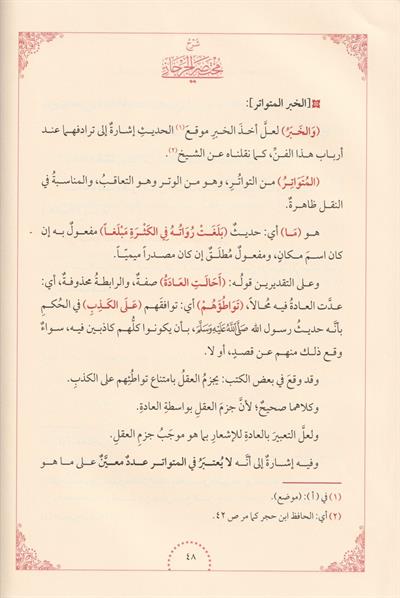 شرح
مختصر الجرجاني
[الخبر المتواتر]:
(وَالخَبَرُ) لعلَّ أخذَ الخبرِ موقعَ(١) الحديثِ إشارةٌ إلى ترادفهما عند
أرباب هذا الفنِّ، كما نقلناه عن الشيخ(٢).
(المُتَوَاتِرُ) من التواتُرِ، وهو من الوتر وهو التعاقبُ، والمناسبةُ في
النقل ظاهرةٌ.
هو (مَا) أي: حديثٌ (بَلَغَتْ رُوَاتُهُ فِي الكَثْرَةِ مَبْلَغاً) مفعولٌ به إن
كان اسمَ مكانٍ، ومفعولٌ مُطلَقٌ إن كان مصدراً ميميّاً.
وعلى التقديرين قولُه: (أَحَالَتِ العَادَةُ) صفةٌ، والرابطةُ محذوفةٌ، أي:
عدَّت العادةُ فيه مُحالاً، (تَوَاطُؤَهُمْ) أي: توافقَهم (عَلَى الكَذِبِ) في الحُكمِ
بأنَّه حديثُ رسول الله ﷺ، بأن يكونوا كلُّهم كاذبين فيه، سواءٌ
وقع ذلك منهم عن قصدٍ، أو لا.
وقد وقعَ في بعض الكتب: يجزمُ العقلُ بامتناع تواطُئِهم على الكذبِ.
وكلاهما صحيحٌ؛ لأنَّ جزمَ العقلِ بواسطةِ العادةِ.
ولعلَّ التعبيرَ بالعادةِ للإشعارِ بما هو موجَبُ جزمِ العقلِ.
وفيه إشارةٌ إلى أنَّه لا يُعتبَرُ في المتواتر عددٌ معيَّنٌ على ما هو
(١) في (أ): (موضع).
(٢) أي: الحافظ ابن حجر كما مر ص ٤٢.
٤٨